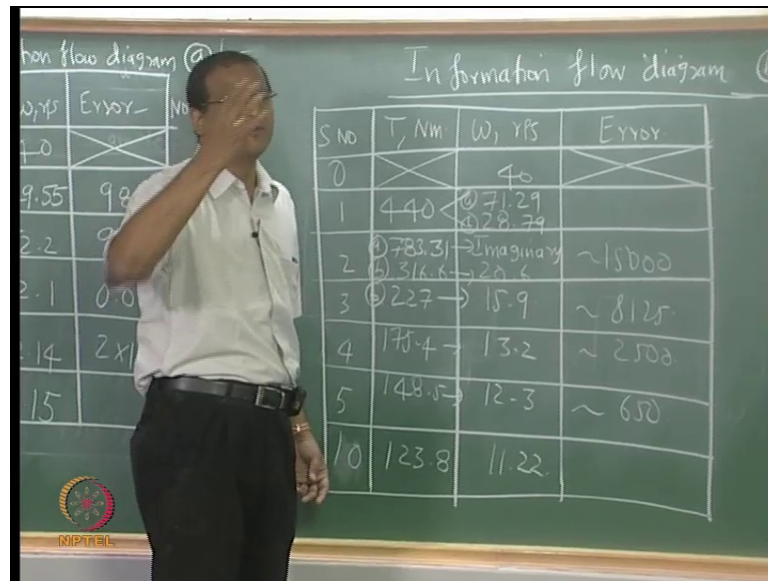 tion flow diagram (a)
ω, rps Error No
40
9.55 98
2.2 9
2.1 0.0
2.14 2×1
15
Information flow diagram
S NO T, Nm ω, rps Error
0 40
1 440 (a) 71.29
(b) 28.79
2 (a) 783.31 → Imaginary
(b) 316.6 → 20.6 ~15000
3 (b) 227 → 15.9 ~ 8125
4 175.4 → 13.2 ~ 2500
5 148.5 → 12.3 ~ 650
10 123.8 11.22
NPTEL